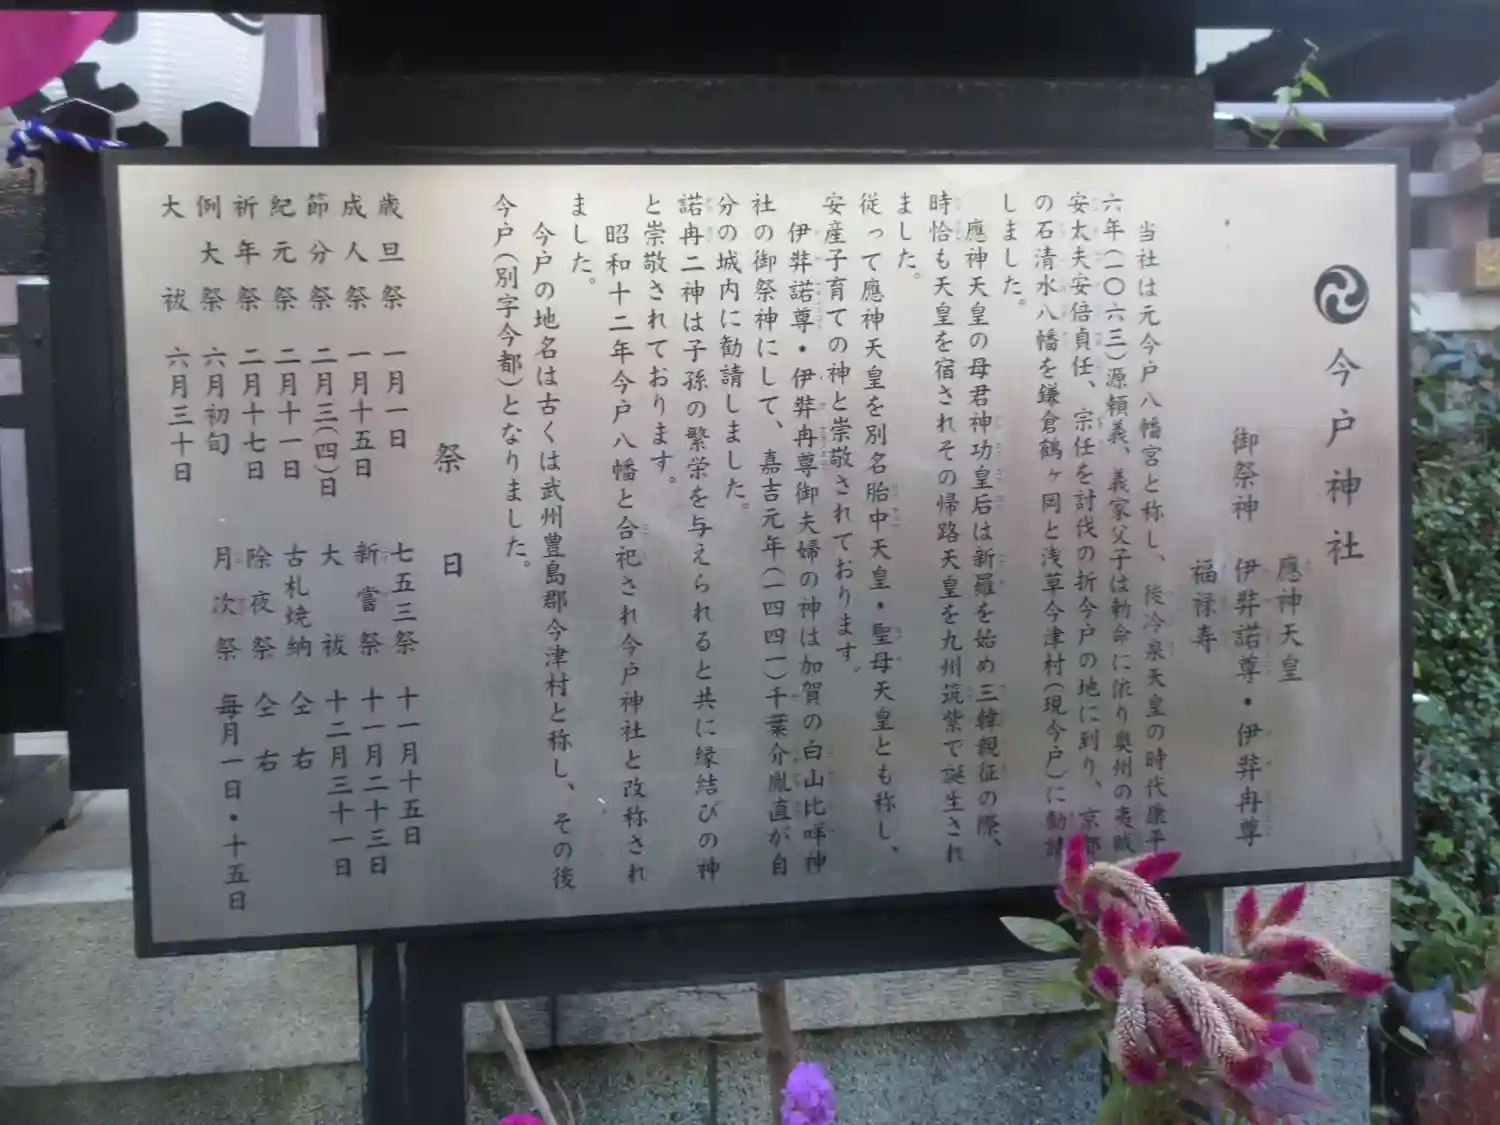 今戸神社
應神天皇
御祭神 伊弉諾尊・伊弉冉尊
福禄寿
当社は元今戸八幡宮と称し、後冷泉天皇の時代康平
六年(一〇六三)源頼義、義家父子は勅命に依り奥州の夷賊
安太夫安倍貞任、宗任を討伐の折今戸の地に到り、京都
の石清水八幡を鎌倉鶴ヶ岡と浅草今津村(現今戸)に勧請
しました。
應神天皇の母君神功皇后は新羅を始め三韓親征の際、
時恰も天皇を宿されその帰路天皇を九州筑紫で誕生され
ました。
従って應神天皇を別名胎中天皇・聖母天皇とも称し、
安産子育ての神と崇敬されております。
伊弉諾尊・伊弉冉尊御夫婦の神は加賀の白山比咩神
社の御祭神にして、嘉吉元年(一四四一)千葉介胤直が自
分の城内に勧請しました。
諾冉二神は子孫の繁栄を与えられると共に縁結びの神
と崇敬されております。
昭和十二年今戸八幡と合祀され今戸神社と改称され
ました。
今戸の地名は古くは武州豊島郡今津村と称し、その後
今戸(別字今都)となりました。
祭日
歳旦祭 一月一日 七五三祭 十一月十五日
成人祭 一月十五日 新嘗祭 十一月二十三日
節分祭 二月三(四)日 大祓 十二月三十一日
紀元祭 二月十一日 古札焼納 仝右
祈年祭 二月十七日 除夜祭 仝右
例大祭 六月初旬 月次祭 毎月一日・十五日
大祓 六月三十日